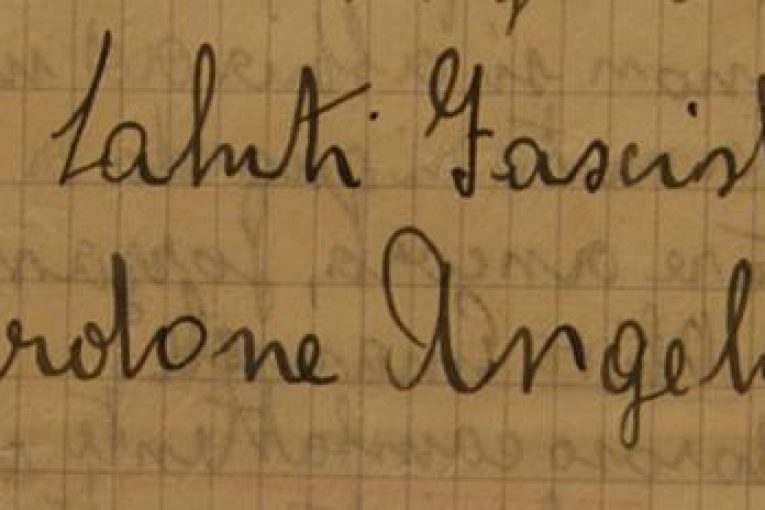 Saluti Fascist
rdone Angel